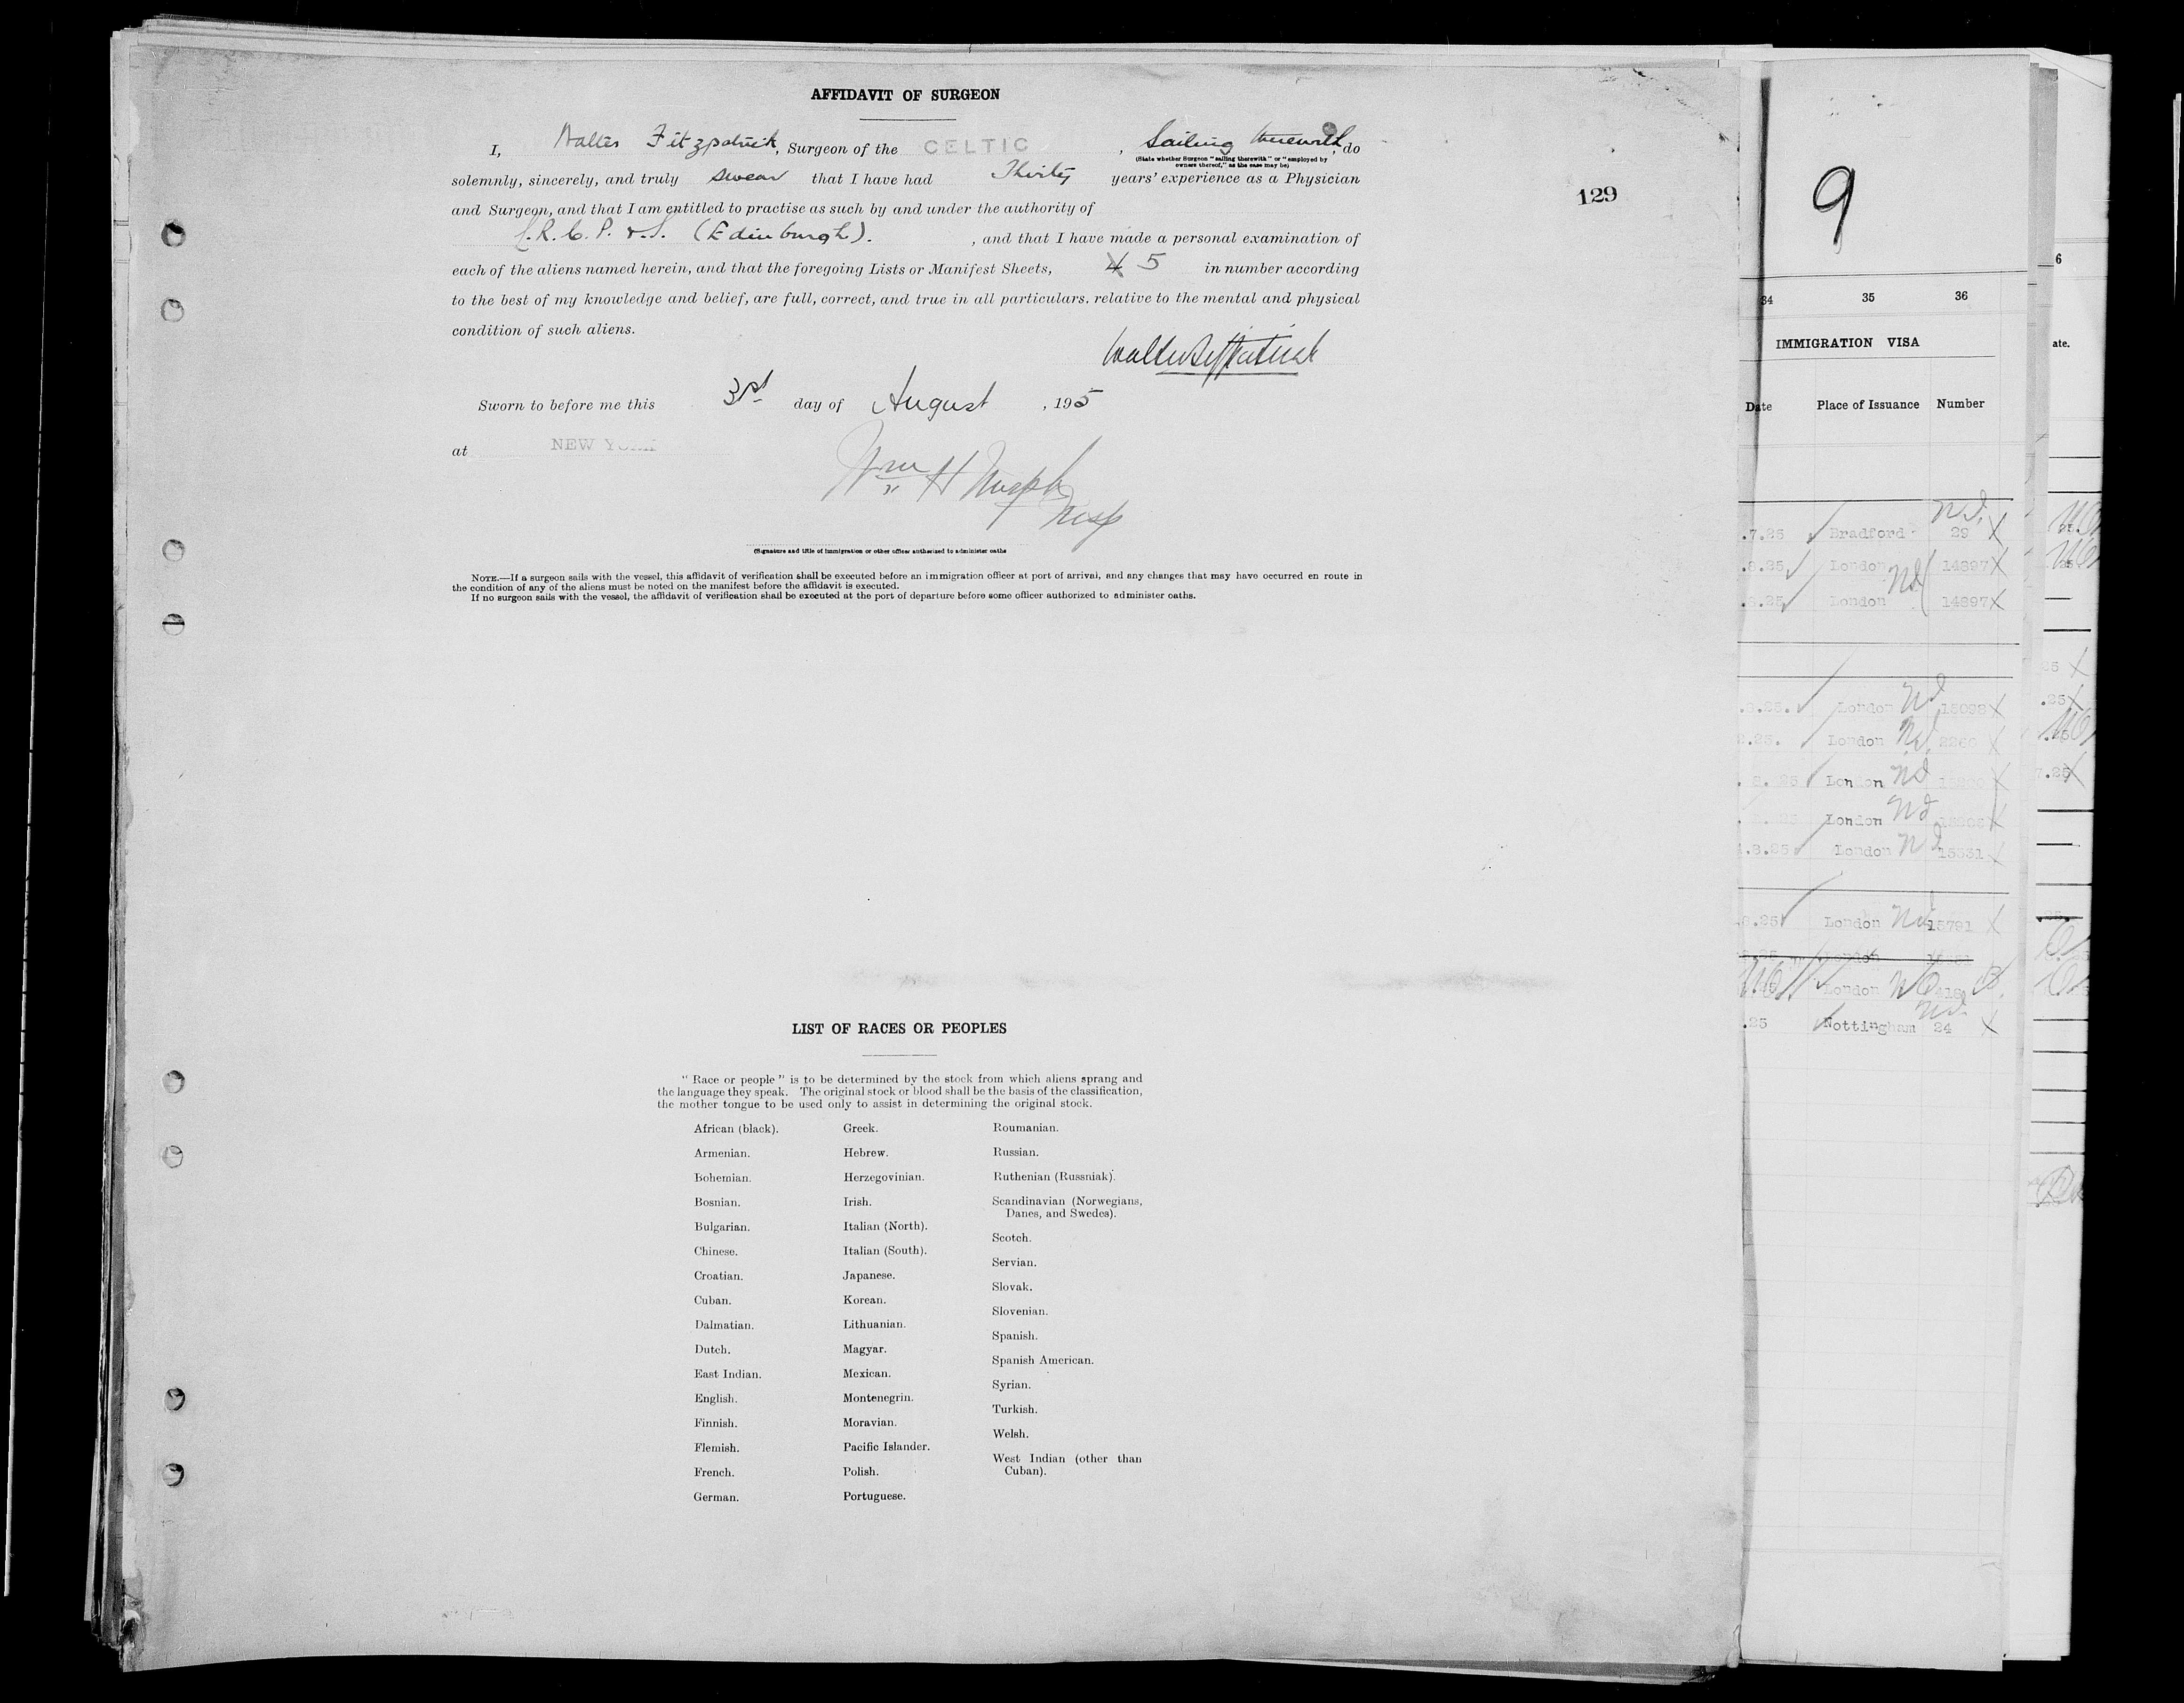 AFFIDAVIT OF SURGEON
I, Walter Fitzpatrick, Surgeon of the CELTIC, Sailing therewith, do
(State whether Surgeon "sailing therewith" or "employed by
owners thereof," as the case may be)
solemnly, sincerely, and truly swear that I have had Thirty years' experience as a Physician
and Surgeon, and that I am entitled to practise as such by and under the authority of
L.R.C.P. & S. (Edinburgh). , and that I have made a personal examination of
each of the aliens named herein, and that the foregoing Lists or Manifest Sheets, 4 5 in number according
to the best of my knowledge and belief, are full, correct, and true in all particulars. relative to the mental and physical
condition of such aliens.
Walter Fitzpatrick
Sworn to before me this 31st day of August , 195
at NEW YORK
Wm H
Insp
(Signature and title of immigration or other officer authorized to administer oaths
NOTE.—If a surgeon sails with the vessel, this affidavit of verification shall be executed before an immigration officer at port of arrival, and any changes that may have occurred en route in
the condition of any of the aliens must be noted on the manifest before the affidavit is executed.
If no surgeon sails with the vessel, the affidavit of verification shall be executed at the port of departure before some officer authorized to administer oaths.
129
LIST OF RACES OR PEOPLES
"Race or people" is to be determined by the stock from which aliens sprang and
the language they speak. The original stock or blood shall be the basis of the classification,
the mother tongue to be used only to assist in determining the original stock.
African (black).
Armenian.
Bohemian.
Bosnian.
Bulgarian.
Chinese.
Croatian.
Cuban.
Dalmatian.
Dutch.
East Indian.
English.
Finnish.
Flemish.
French.
German.
Greek.
Hebrew.
Herzegovinian.
Irish.
Italian (North).
Italian (South).
Japanese.
Korean.
Lithuanian.
Magyar.
Mexican.
Montenegrin.
Moravian.
Pacific Islander.
Polish.
Portuguese.
Roumanian.
Russian.
Ruthenian (Russniak).
Scandinavian (Norwegians,
Danes, and Swedes).
Scotch.
Servian.
Slovak.
Slovenian.
Spanish.
Spanish American.
Syrian.
Turkish.
Welsh.
West Indian (other than
Cuban).
9
34 35 36
IMMIGRATION VISA
Date Place of Issuance Number
.7.25 Bradford 29
.8.25 London 14897
.8.25 London 14897
.8.25. London 15098
2.25. London
.8.25 London
London
.8.25 London 15531
.8.25 London 15791
London
London 418
.25 Nottingham 24
6
ate.
25
.25
7.25